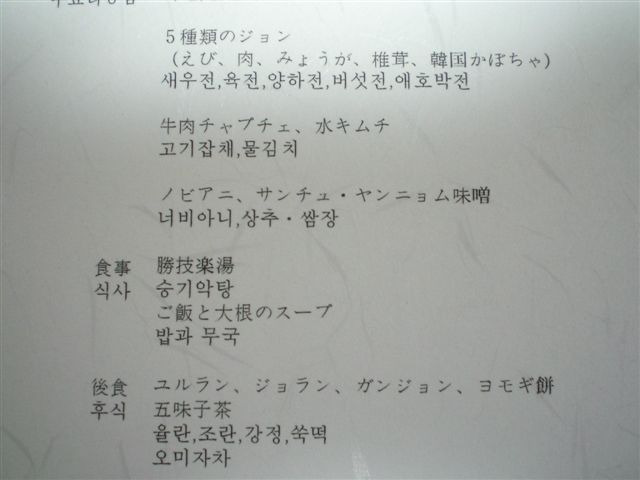 5種類のジョン
(えび、肉、みょうが、椎茸、韓国かぼちゃ)
새우전,육전,양하전,버섯전,애호박전
牛肉チャプチェ、水キムチ
고기잡채,물김치
ノビアニ、サンチュ・ヤンニョム味噌
너비아니,상추・쌈장
食事 勝技楽湯
식사 숭기악탕
ご飯と大根のスープ
밥과 무국
後食 ユルラン、ジョラン、ガンジョン、ヨモギ餅
후식 五味子茶
율란,조란,강정,쑥떡
오미자차